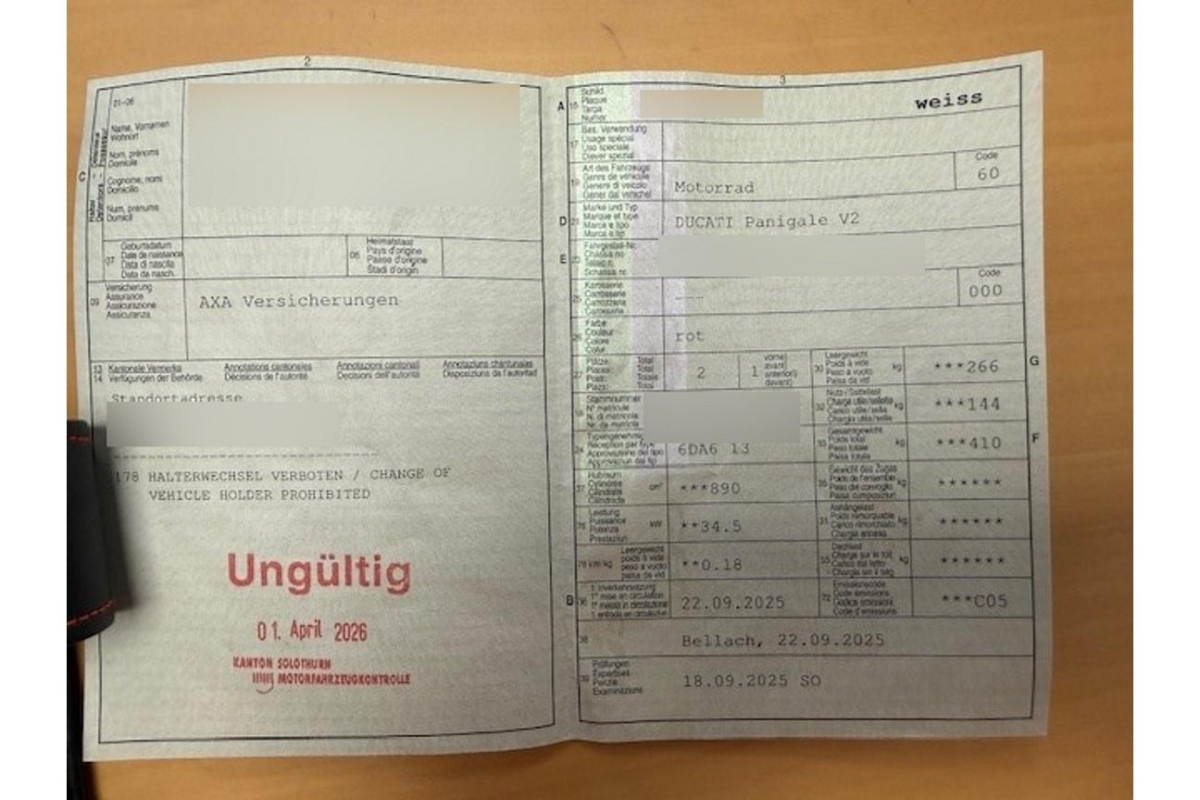 2
C
Halter
01-06
Name, Vornamen
Wohnort
Nom, prénoms
Domicile
Cognome, nomi
Domicilio
Num, prenums
Domicil
07
Geburtsdatum
Date de naissance
Data di nascita
Data da nasch.
08
Heimatstaat
Pays d'origine
Paese d'origine
Stadi d'origin
09
Versicherung
Assurance
Assicurazione
Assicuranza
AXA Versicherungen
13
14
Kantonale Vermerke
Verfügungen der Behörde
Annotations cantonales
Décisions de l'autorité
Annotazioni cantonali
Decisioni dell'autorità
Annotaziuns chantunalas
Disposiziuns da l'autoritad
Standortadresse
178 HALTERWECHSEL VERBOTEN / CHANGE OF
VEHICLE HOLDER PROHIBITED
Ungültig
01. April 2026
KANTON SOLOTHURN
MOTORFAHRZEUGKONTROLLE
3
A
15
Schild
Plaque
Targa
Numer
weiss
17
Bes. Verwendung
Usage spécial
Uso speciale
Diever spezial
19
Art des Fahrzeugs
Genre de véhicule
Genere di veicolo
Gener dal vehichel
Motorrad
Code
60
D
21
Marke und Typ
Marque et type
Marca e tipo
Marca e tip
DUCATI Panigale V2
E
23
Fahrgestell-Nr.
Châssis no
Telaio n.
Schassis nr.
25
Karosserie
Carrosserie
Carrozzeria
Carossaria
---
Code
000
26
Farbe
Couleur
Colore
Colur
rot
27
Plätze:
Places:
Posti:
Plazs:
Total
Total
Totale
Total
2
1
vorne)
avant)
anteriori)
davant)
30
Leergewicht
Poids à vide
Peso a vuoto
Paisa da vid
kg
***266
G
18
Stammnummer
N° matricule
N. di matricola
Nr. da matricla
32
Nutz-/Sattellast
Charge utile/sellette
Carico utile/sella
Chargia utila/sella
kg
***144
24
Typengenehmig.
Réception par type
Approvazione del tipo
Approvaziun dal tip
6DA6 13
33
Gesamtgewicht
Poids total
Peso totale
Paisa totala
kg
***410
F
37
Hubraum
Cylindrée
Cilindrata
Cilindrada
cm³
***890
35
Gewicht des Zuges
Poids de l'ensemble
Peso del convoglio
Paisa cumposiziun
kg
******
76
Leistung
Puissance
Potenza
Prestaziun
kW
**34.5
31
Anhängelast
Poids remorquable
Carico rimorchiato
Chargia annexa
kg
******
78 kW/kg
Leergewicht
poids à vide
peso a vuoto
paisa da vid
**0.18
55
Dachlast
Charge sur le toit
Carico sul tetto
Chargia sin il tetg
kg
******
B
36
1. Inverkehrsetzung
1re mise en circulation
1a messa in circolazione
1. entrada en circulaziun
22.09.2025
72
Emissionscode
Code émissions
Codice emissioni
Code d'emissiuns
***C05
38
Bellach, 22.09.2025
39
Prüfungen
Expertises
Perizie
Examinaziuns
18.09.2025 SO